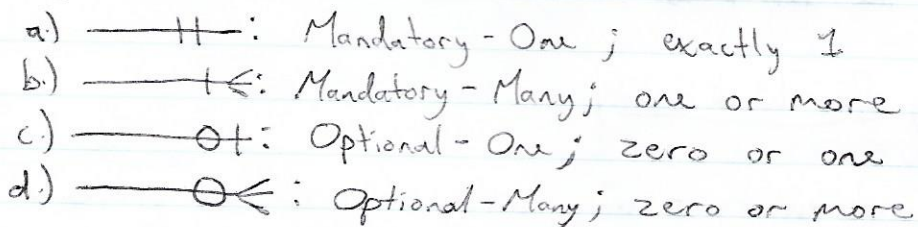 a.) : Mandatory - One ; exactly 1
b.) : Mandatory - Many; one or more
c.) : Optional - One ; zero or one
d.) : Optional - Many; zero or more